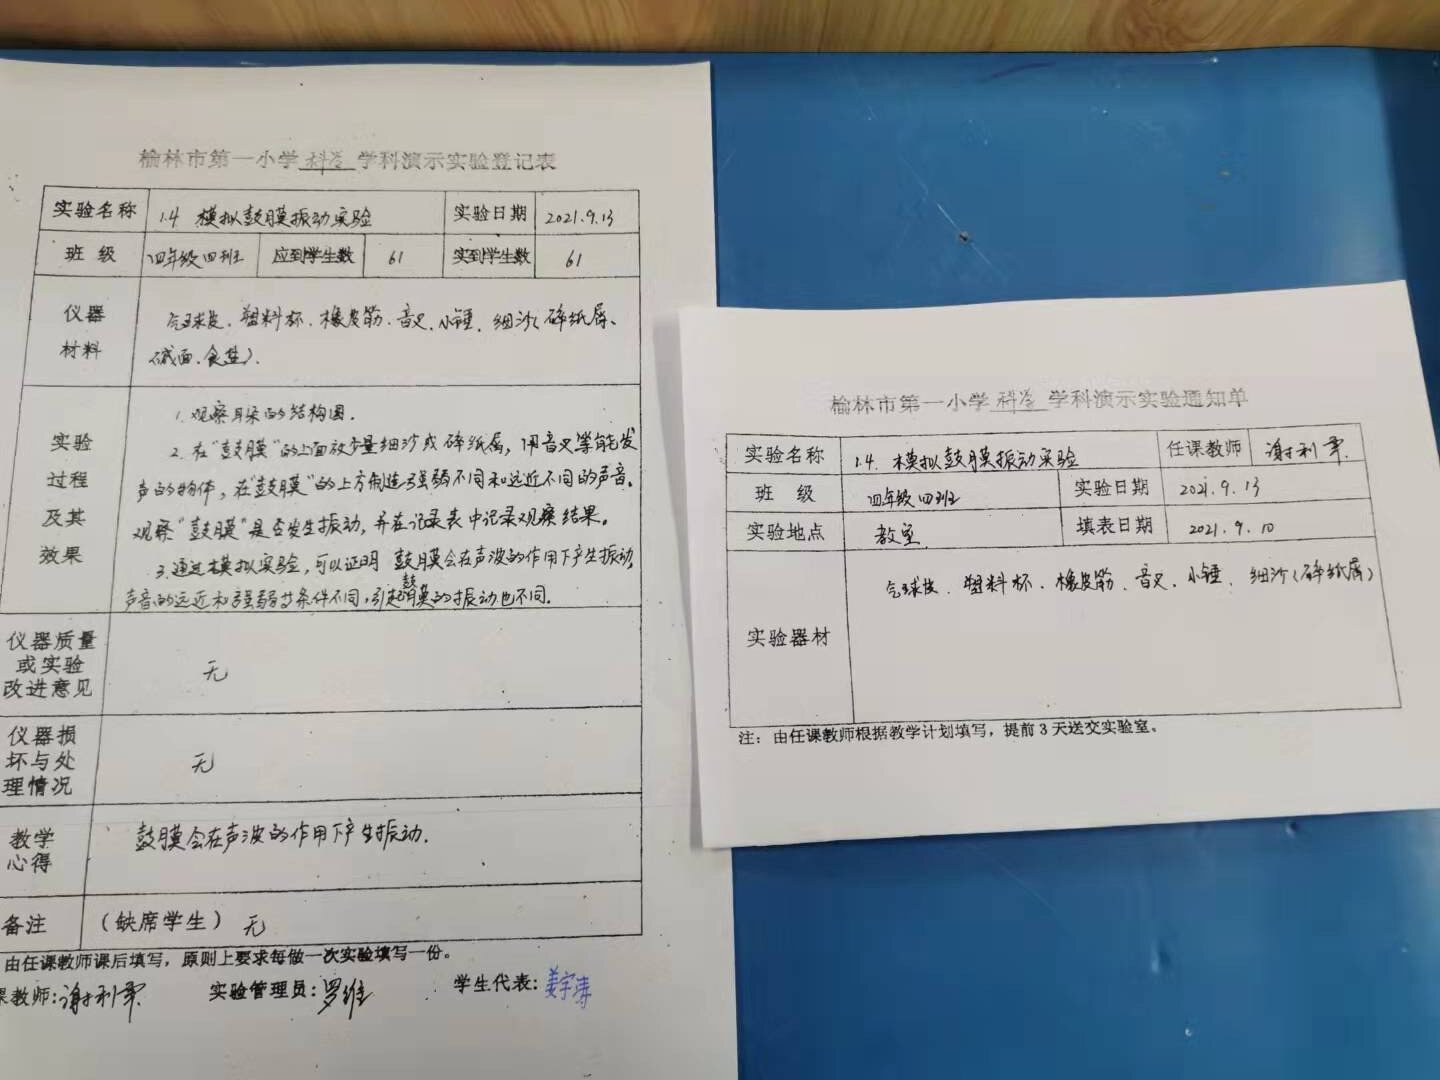 榆林市第一小学 科学 学科演示实验登记表
实验名称 1.4 模拟鼓膜振动实验 实验日期 2021.9.13
班 级 四年级四班 应到学生数 61 实到学生数 61
仪器
材料
气球皮、塑料杯、橡皮筋、音叉、小锤、细沙(碎纸屑、
碱面、食盐).
实验
过程
及其
效果
1.观察耳朵的结构图.
2.在“鼓膜”的上面放少量细沙或碎纸屑,用音叉等能发
声的物体,在“鼓膜”的上方制造强弱不同和远近不同的声音。
观察“鼓膜”是否发生振动,并在记录表中记录观察结果。
3.通过模拟实验,可以证明 鼓膜会在声波的作用下产生振动,
声音的远近和强弱等条件不同,引起鼓膜的振动也不同.
仪器质量
或实验
改进意见
无
仪器损
坏与处
理情况
无
教学
心得
鼓膜会在声波的作用下产生振动.
备注 (缺席学生) 无
由任课教师课后填写,原则上要求每做一次实验填写一份。
课教师: 谢利 实验管理员: 罗维 学生代表: 姜宇涛
榆林市第一小学 科学 学科演示实验通知单
实验名称 1.4. 模拟鼓膜振动实验 任课教师 谢利
班 级 四年级四班 实验日期 2021.9.13
实验地点 教室 填表日期 2021.9.10
实验器材 气球皮、塑料杯、橡皮筋、音叉、小锤、细沙(碎纸屑)
注: 由任课教师根据教学计划填写,提前3天送交实验室。